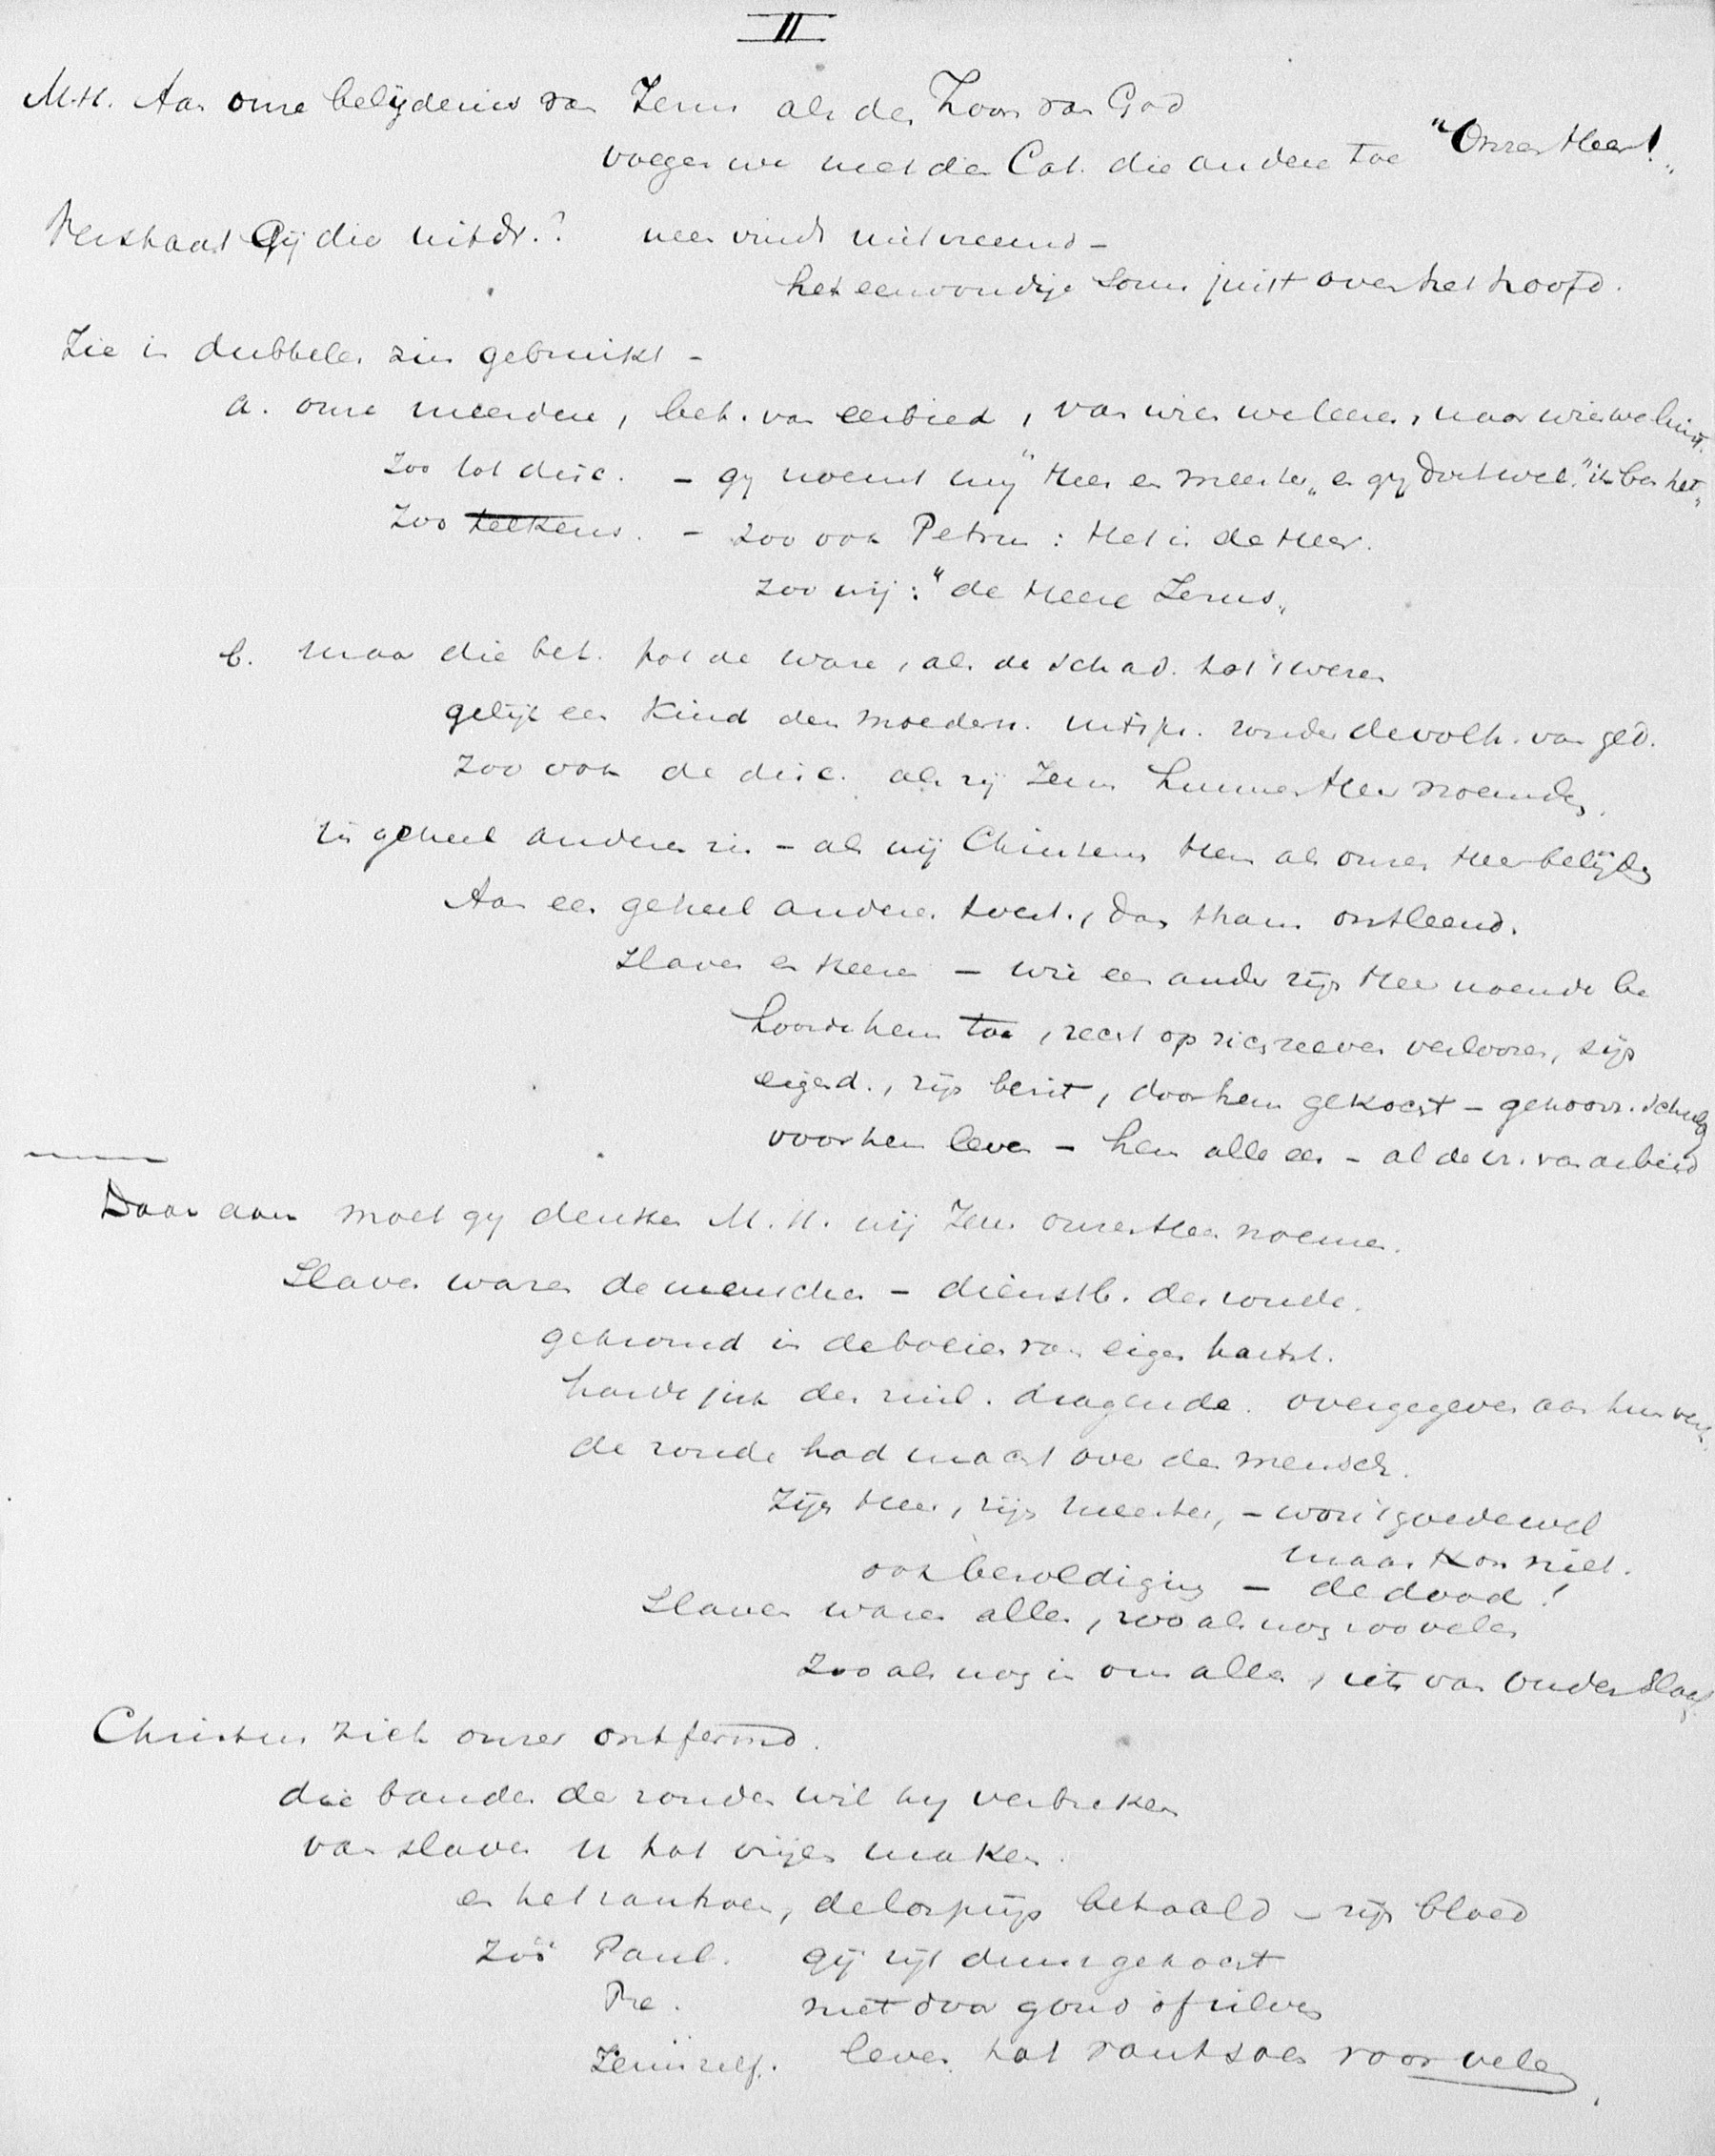 II
M.H. Aan onze belijdenis van Jezus als den Zoon van God
voegen we met den Cat. die andere toe "Onzen Heer!"
Verstaat Gij die uitdr.? neen vindt niet vreemd –
het eenvoudige soms juist over het hoofd.
Zie in dubbelen zin gebruikt –
a. onze meerdere, bet. van eerbied, van wien we leeren, naar wien we luist.
Zoo tot disc. – gij noemt mij "Heer en Meester" en gij doet wel. "ik ben het"
Zoo telkens. – zoo ook Petrus: Het is de Heer.
zoo wij: "de Heere Jezus"
b. maar die bet. tot de ware, als de schad. tot 't wezen
gelijk een Kind den moedern. uitspr. zonder de volh. van ged.
Zoo ook de disc. als zij Jezus hunnen Heer noemden.
in geheel anderen zin – als wij Christenen Hem als onzen Heer belijden
Aan een geheel anderen toest., dan thans ontleend.
Slaven en Heeren – wie een ander zijn Heer noemde be
hoorde hem toe, recht op zich zelven verloren, zijn
eigend., zijn bezit, door hem gekocht – gehoorz. schuldig
voor hem leven – hem alle eer – al de vr. van arbeid
Daar aan moet gij denken M.H. wij Jezus onzen Heer noemen.
Slaven waren de menschen – dienstb. der zonde.
gekromd in de boeien van eigen hartst.
harde juk der zinl. dragende. overgegeven aan hun
de zonde had macht over den mensch.
Zijn Heer, zijn meester, – wou 't goede wel
maar kon niet.
ook bezoldiging – de dood!
Slaven waren allen, zoo als nog zoo velen
Zoo als nog in ons allen, iets van ouden Slaaf.
Christus zich onzer ontfermd.
die banden der zonde wil hij verbreken
van slaven u tot vrijen maken.
en het rantsoen, de losprijs betaald – zijn bloed
Zóó Paul. gij zijt duur gekocht
Pe. niet door goud of zilver
Jezus zelf. leven tot rantsoen voor velen.